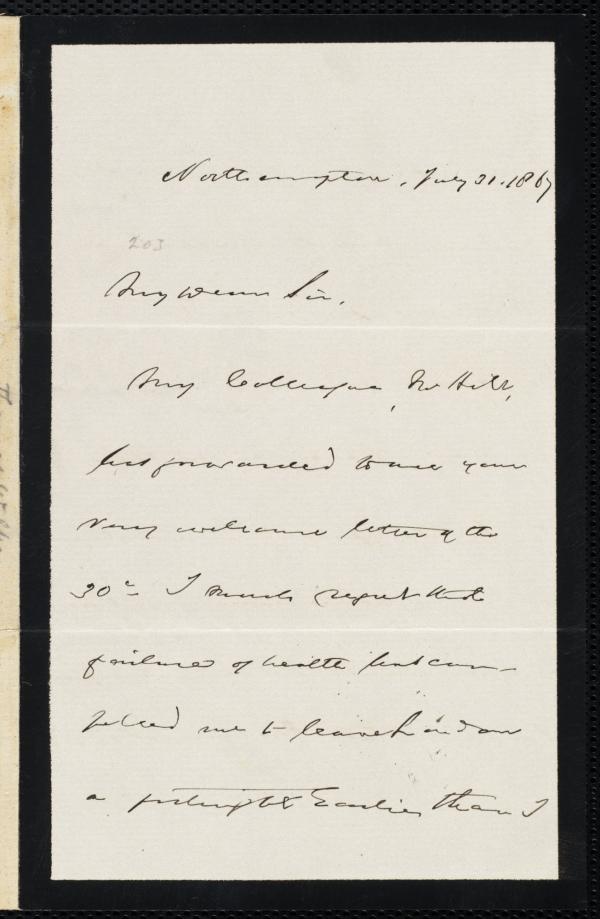 Northampton, July 31. 1867
203
My Dear Sir,
My Colleague, Mr Hill,
has forwarded to me your
very welcome letter of the
30th I much regret that
failure of health has com-
pelled me to leave London
a fortnight Earlier than I